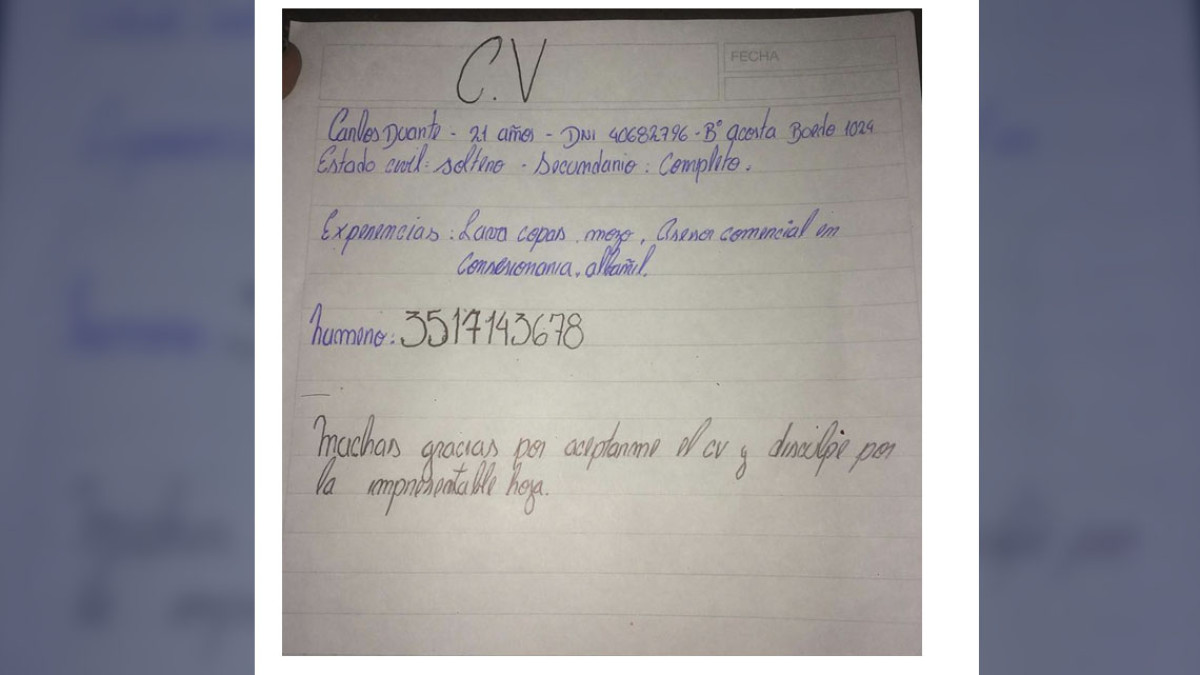 C.V
FECHA
Carlos Duarte - 21 años - DNI 40682796 - B° acosta Boedo 1024
Estado civil: soltero - Secundario: Completo.
Experiencias: Lava copas, mozo, asesor comercial en
Consesionaria, albañil.
numero: 3517143678
Muchas gracias por aceptarme el cv y disculpe por
la impresentable hoja.